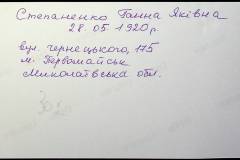 Степаненко Ганна Яківна
28.05.1920р.
вул. Чернецького, 175
м. Первомайськ
Миколаївська обл.